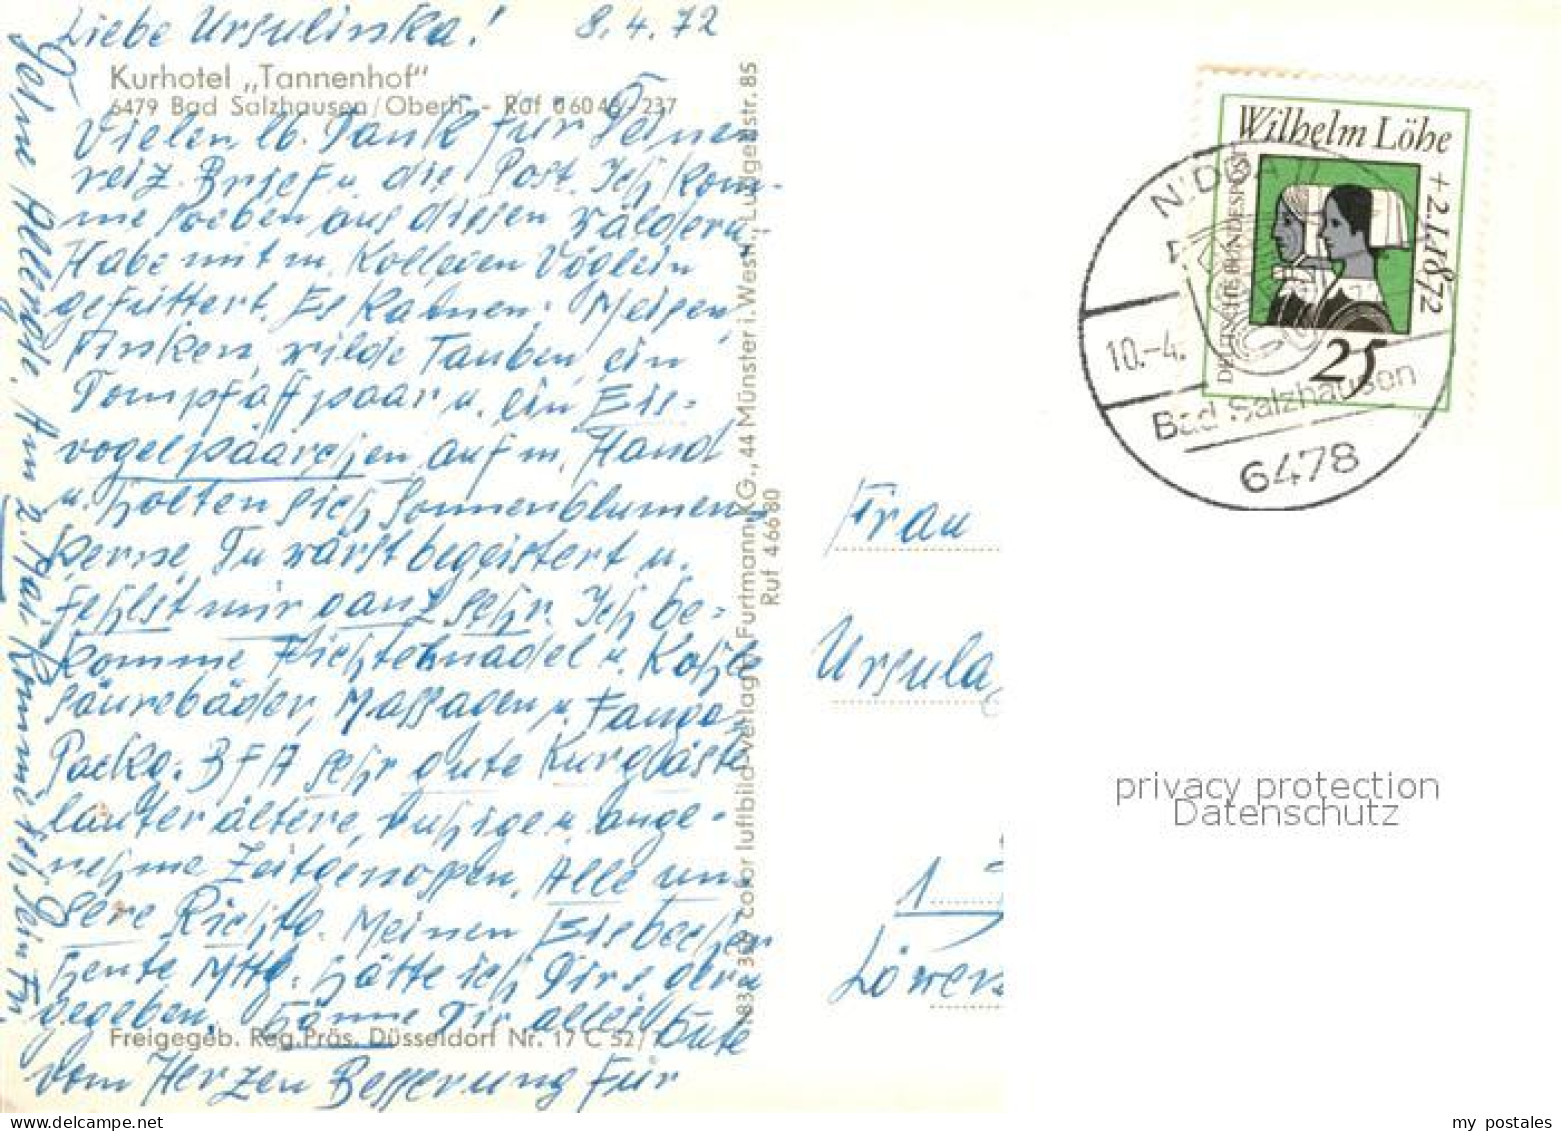 Liebe Ursulinska! 8.4.72
Kurhotel „Tannenhof"
6479 Bad Salzhausen/Oberh. - Ruf 06046-237
Vielen lb. Dank für Deinen
reiz. Brief u. die Post. Ich kom-
me soeben aus diesen Wäldern
Habe mit m. Kollegen Vöglein
gefüttert. Es kamen: Meisen,
Finken, wilde Tauben, ein
Dompfaffpaar u. ein Eis-
vogelpäärchen auf m. Hand
u. holten sich Sonnenblumen
kerne. Du wärst begeistert u.
fehlst mir ganz sehr. Ich be-
komme Fichtennadel u. Kohle
säurebäder, Massagen u. Fango
Packg. BFA sehr gute Kurgäste
lauter ältere, ruhige u. ange-
nehme Zeitgenossen. Alle un-
sere Richtg. Meinen Eisbecher
heute Mttg. hätte ich Dir s. gern
gegeben. Gönne Dir alles Gute
Freigegeb. Reg.Präs. Düsseldorf Nr. 17 C 52/
vom Herzen Besserung für
Dein Allerlei. Am 2. Mai komme ich Dein Fr.
color luftbild-verlag Furtmann KG., 44 Münster i. Westf., Ludgeristr. 85
Ruf 46680
Wilhelm Löhe
+2.1.1872
DEUTSCHE BUNDESPOST
25
NIDDA
10.-4.
Bad Salzhausen
6478
Frau
Ursula
1
Löwen
privacy protection
Datenschutz
my postales